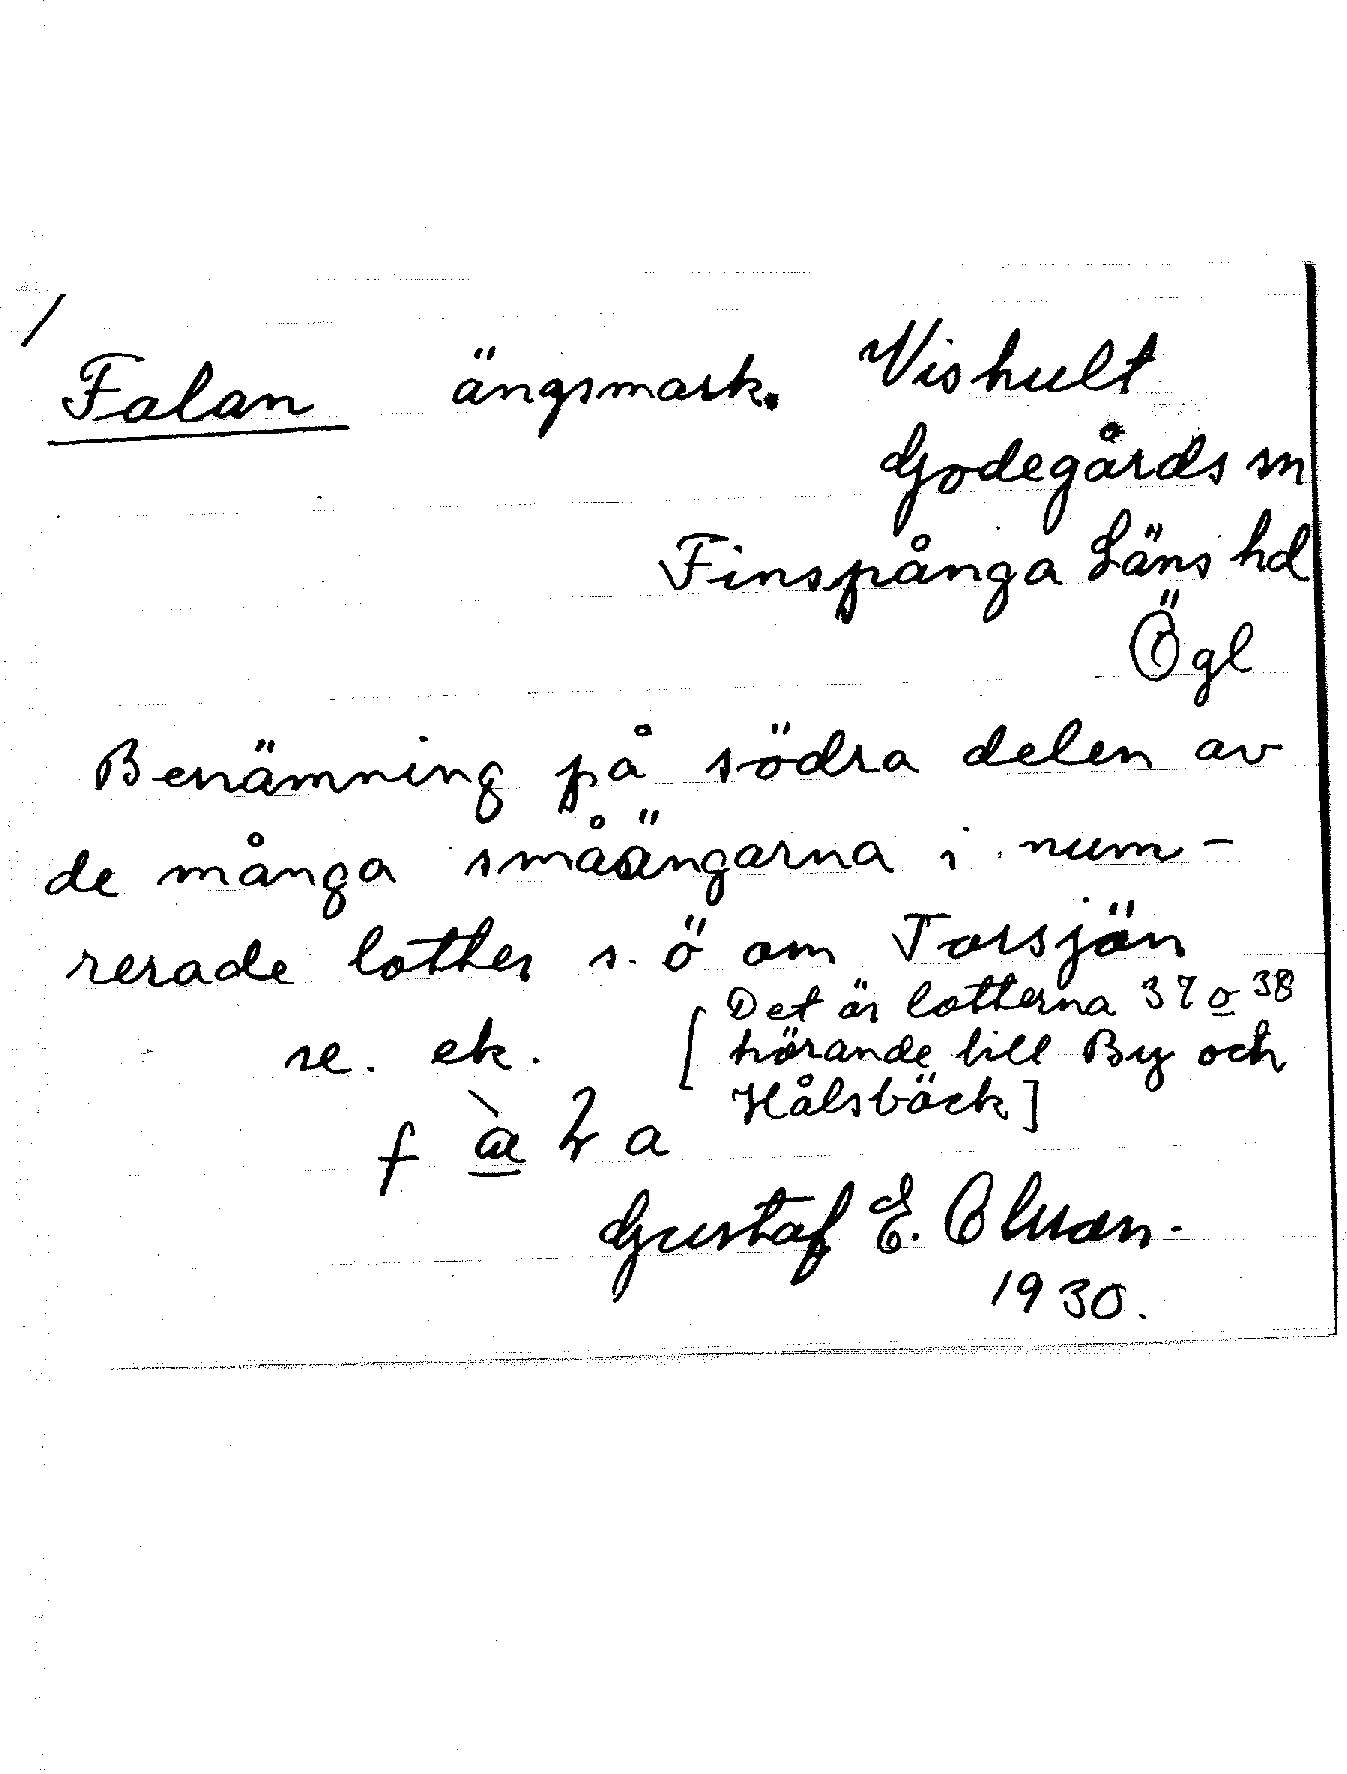 /
Falan ängsmark. Vishult
Godegårds sn
Finspånga Läns hd
Ögl
Benämning på södra delen av
de många småängarna i num-
rerade lotter s. ö om Torsjön
se. ek. [Det är lotterna 37 o 38
hörande till By och
Hålsbäck]
Gustaf E. Olsson.
1930.